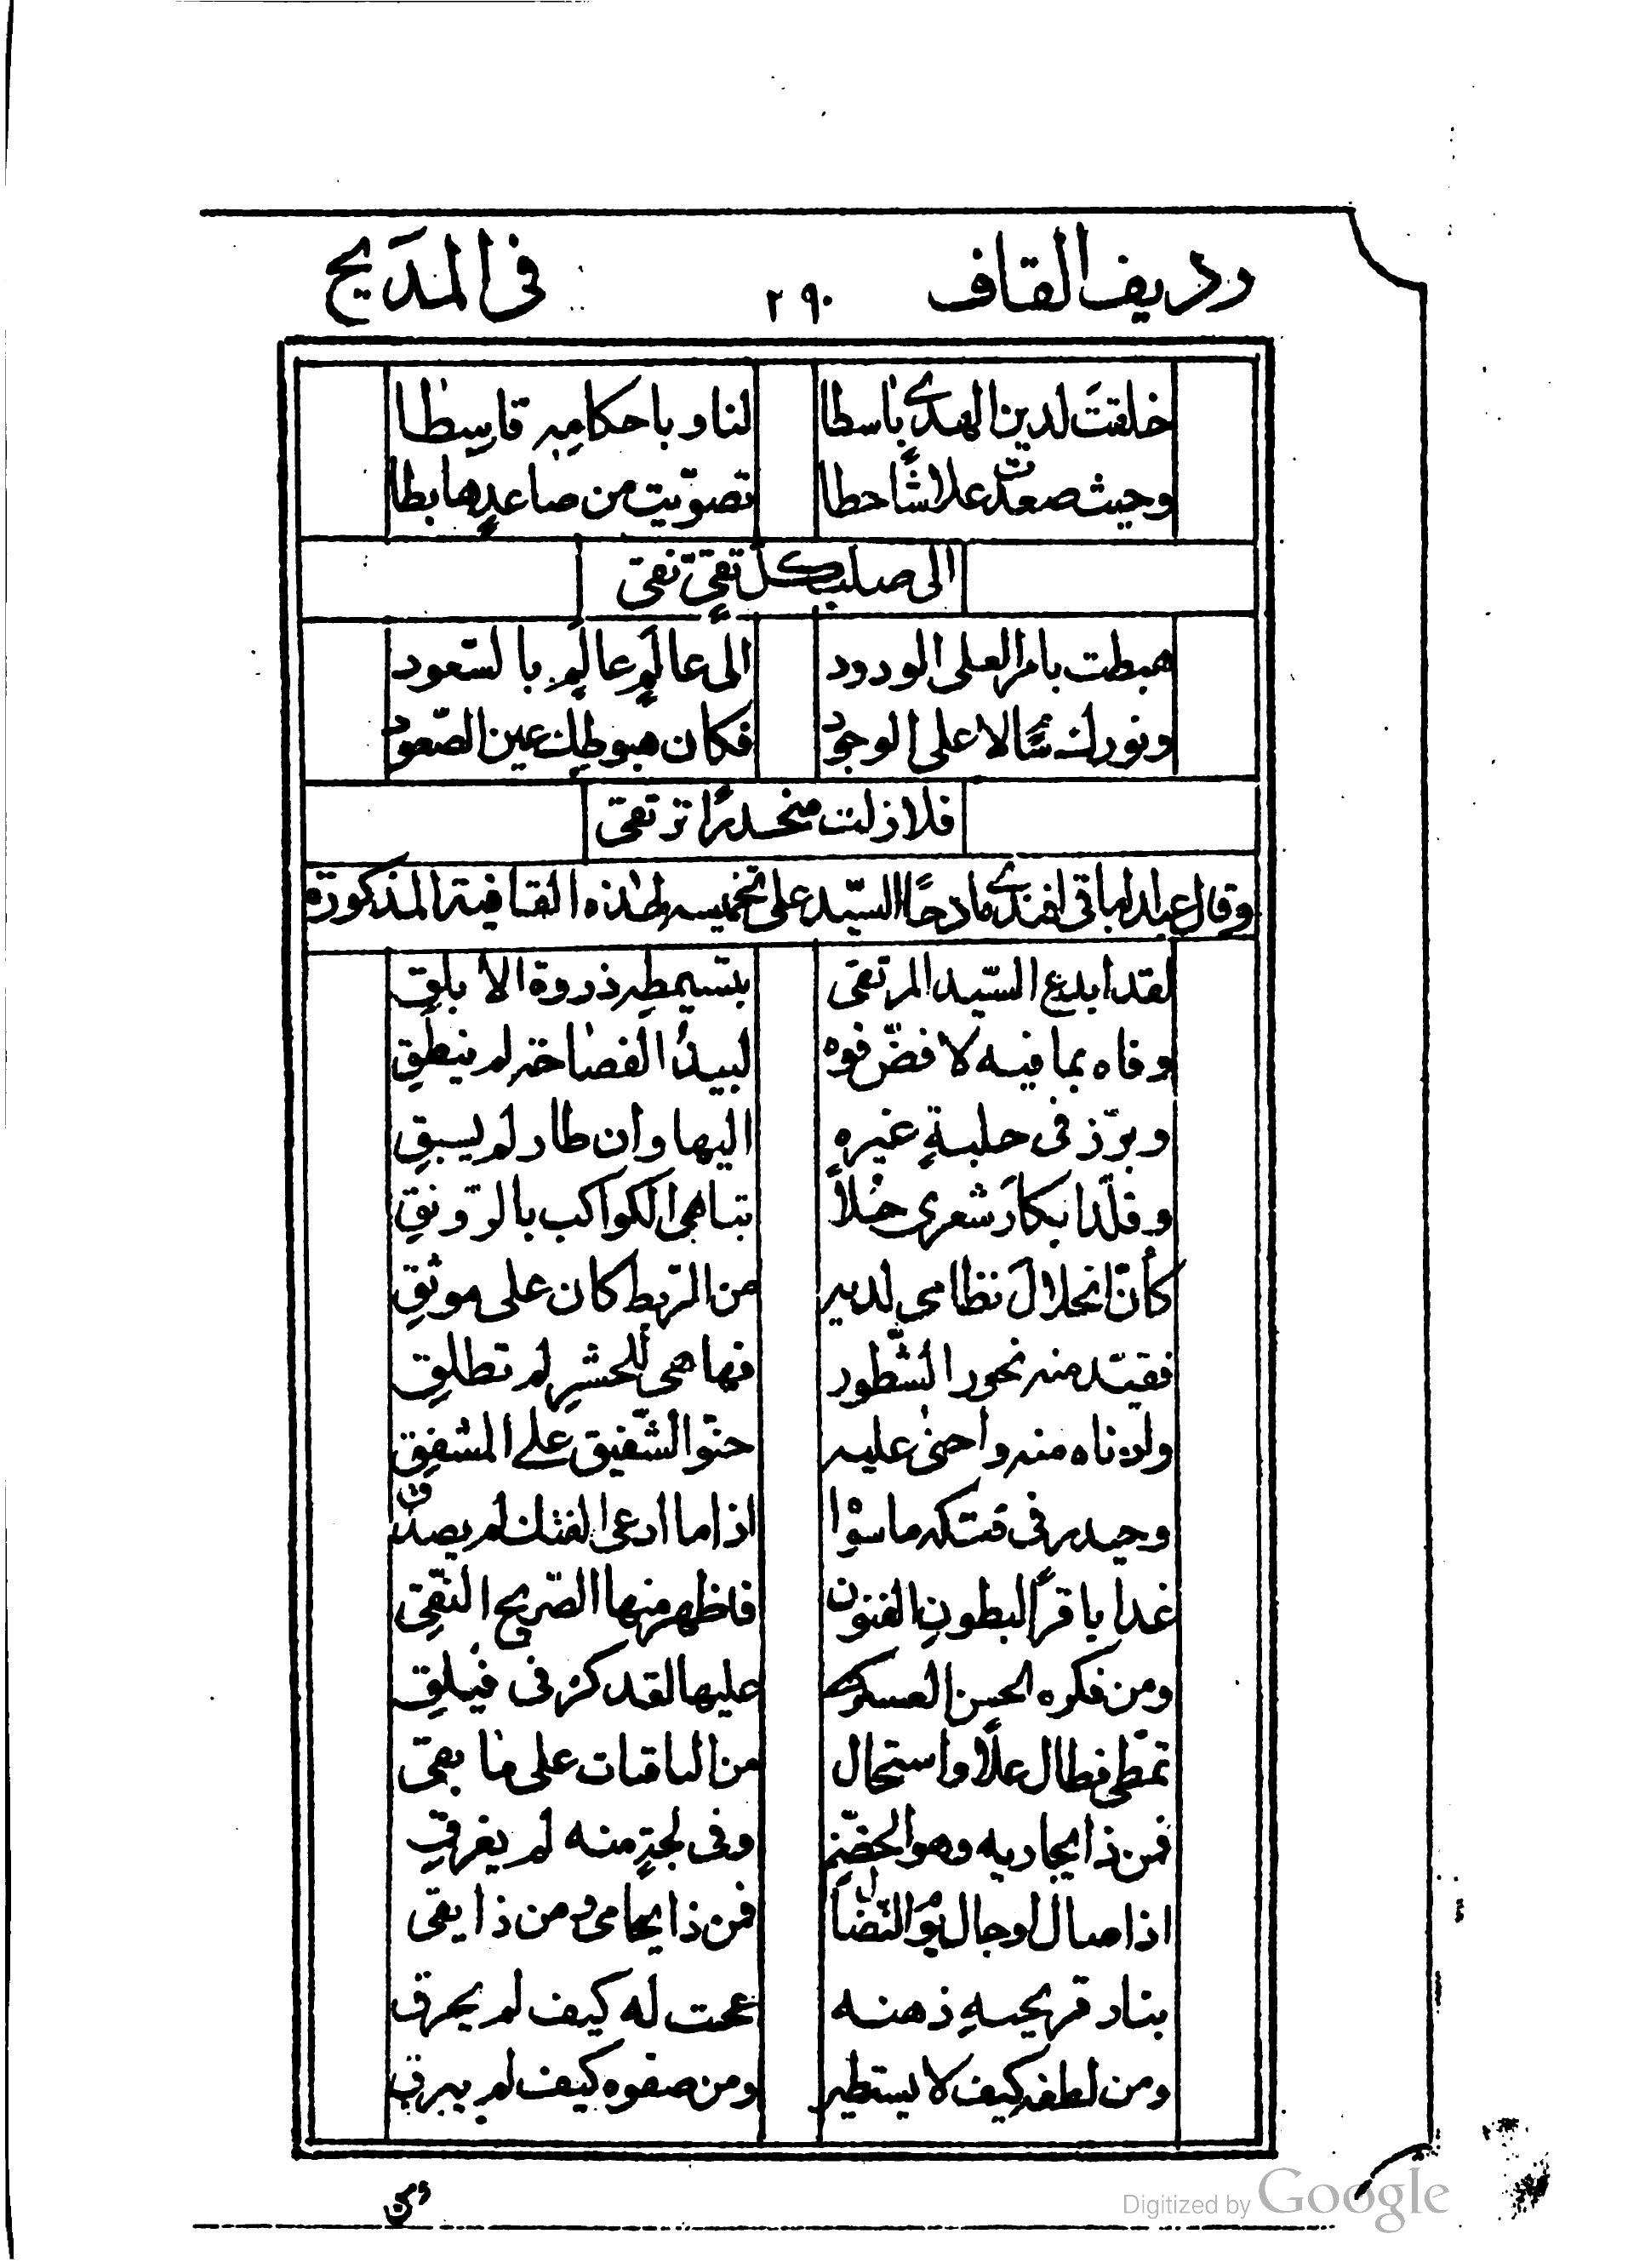 رديف القاف ٢٩٠ فى المدَيح
خلقتَ لدين الهدى باسطا لنا وباحكامِهِ قاسِطا
وحيث صعدت علا شاحطا تصوّيت من صاعدٍ هابطا
الى صلب كل تقىٍّ نقى
هبطت بامر العلى الودود الى عالَمٍ عالِمٍ بالسّعود
ونورك سَمَا لاعلى الوجود فكان هبوطك عين الصّعود
فلا زلت منحدرًا ترتقى
وقال عبد الباقى افندى مادحًا السيّد على تخميسه لهذه القافية المذكورة
لقد ابدع السّيد المرتقى بتسميطِهِ ذروة الابلقِ
وفاه بما فيه لا فضّ فوه لبيدُ الفصاحة لم ينطقِ
وبرّز فى حلبةٍ غيره اليها وان طار لم يسبقِ
وقلّد ابكارَ شعرى حُلاً تباهى الكواكب بالرّونقِ
كأنّ انحلالَ نظامى لديه من الرّبط كان على موثقِ
فقيّد منه نحور الشّطور فها هى للحشرِ لم تطلقِ
ولدناه منه واحنى عليه حنوّ الشّفيق على المشفِق
وحيدر فى فتكه ما سوا اذا ما ادعى الفتك لم يصدّق
غدا باقرًا لبطونِ الفنون فاظهر منها الصّريح النّقىِ
ومن فكره الحسن العسكرى عليها لقد كرّ فى فيلقِ
تمطّى فطال علًا واستحال من الباقيات على ما بقى
فمن ذا يجاريه وهو الخضمّ وفى لجةٍ منه لم يغرقِ
اذا صال او جال يوم النّضال فمن ذا يحامى ومن ذا يقى
بنار قريحيةِ ذهنه عجبت له كيف لم يحرقِ
ومن لطفه كيف لا يستطير ومن صفوه كيف لم يبرقِ
Digitized by Google